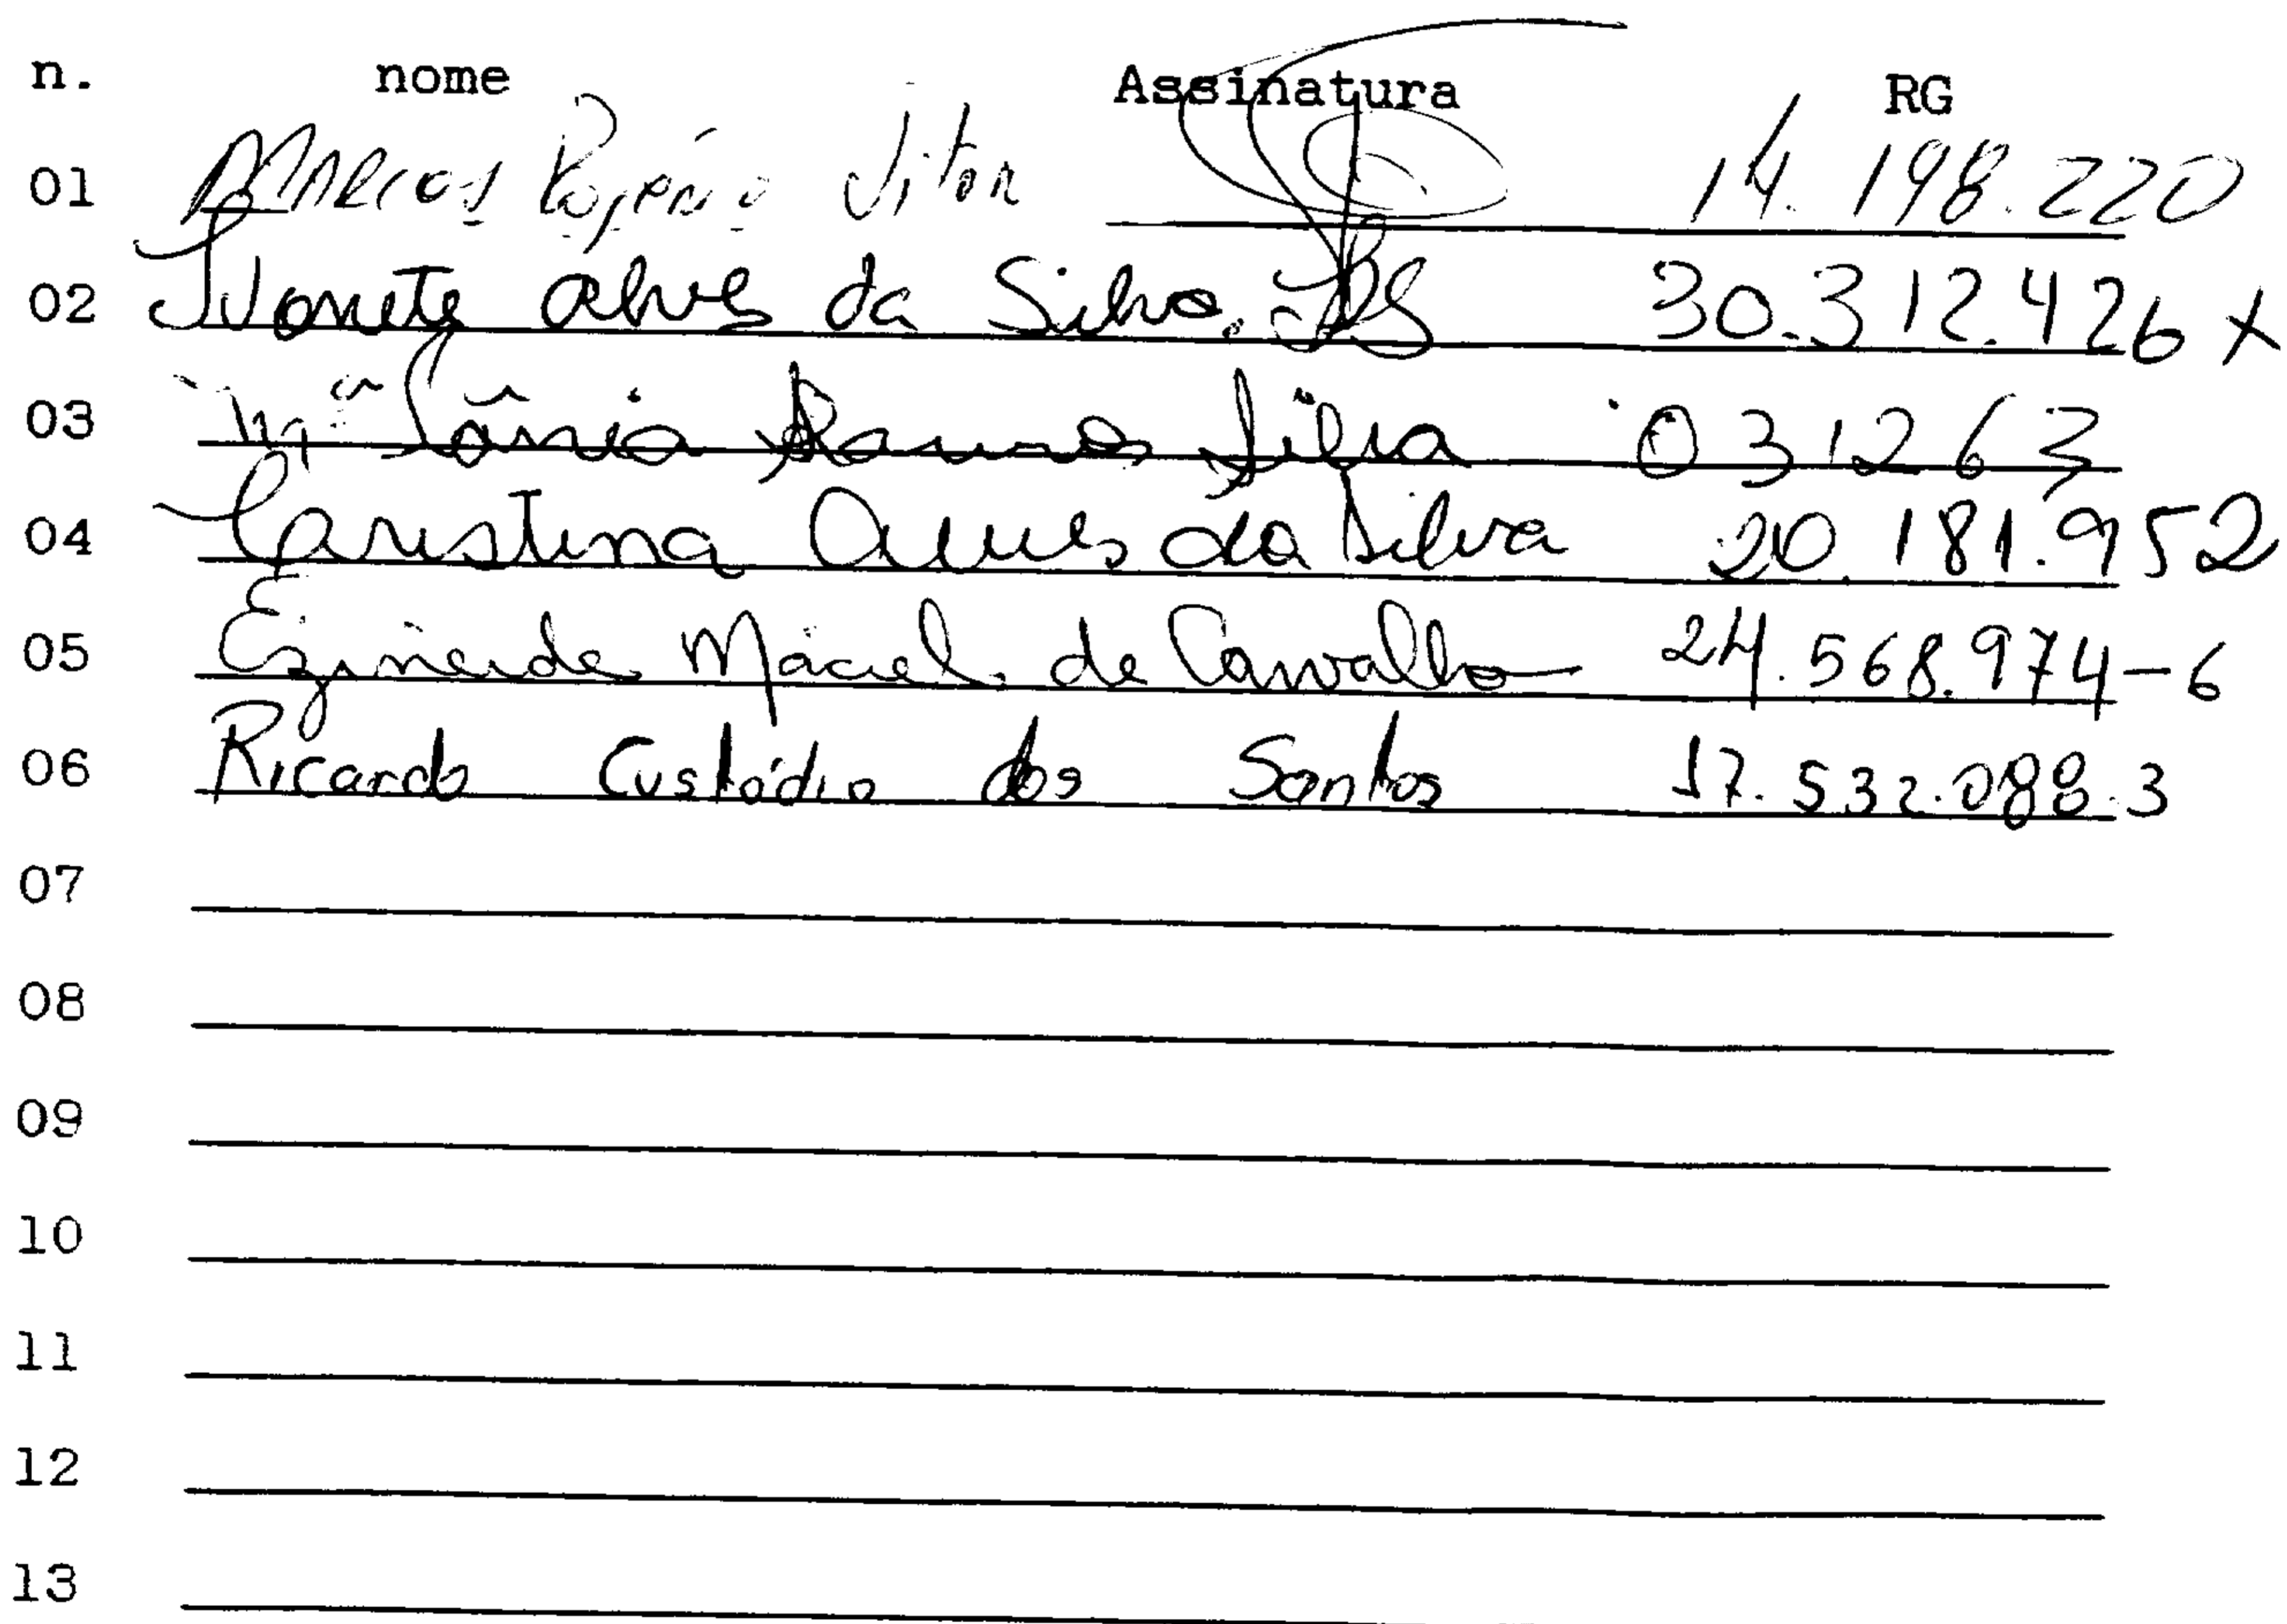 n. nome Assinatura RG
01 Marcos Rogério Vitor 14.198.220
02 Ivonete alves da Silva. 30.312.426 X
03 Mª Vânia Ramos Silva 031263
04 Cristina Alves da Silva 20.181.952
05 Ezineide Maciel de Carvalho 24.568.974-6
06 Ricardo Custódio dos Santos 17.532.088.3
07
08
09
10
11
12
13